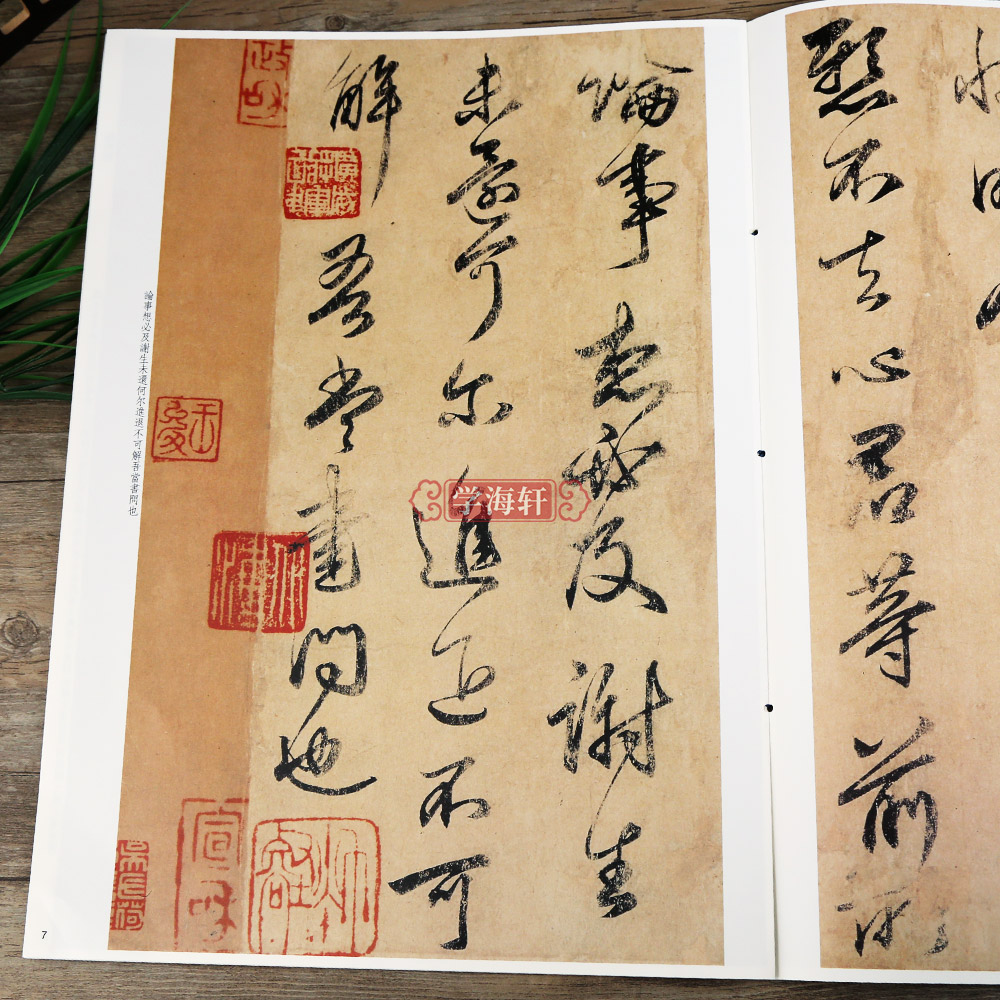 懸不去心君等前所
論事想必及謝生
未還何尔進退不可
解吾當書問也
論事想必及謝生未還何尔進退不可解吾當書問也
政和
宣和
学海轩
7